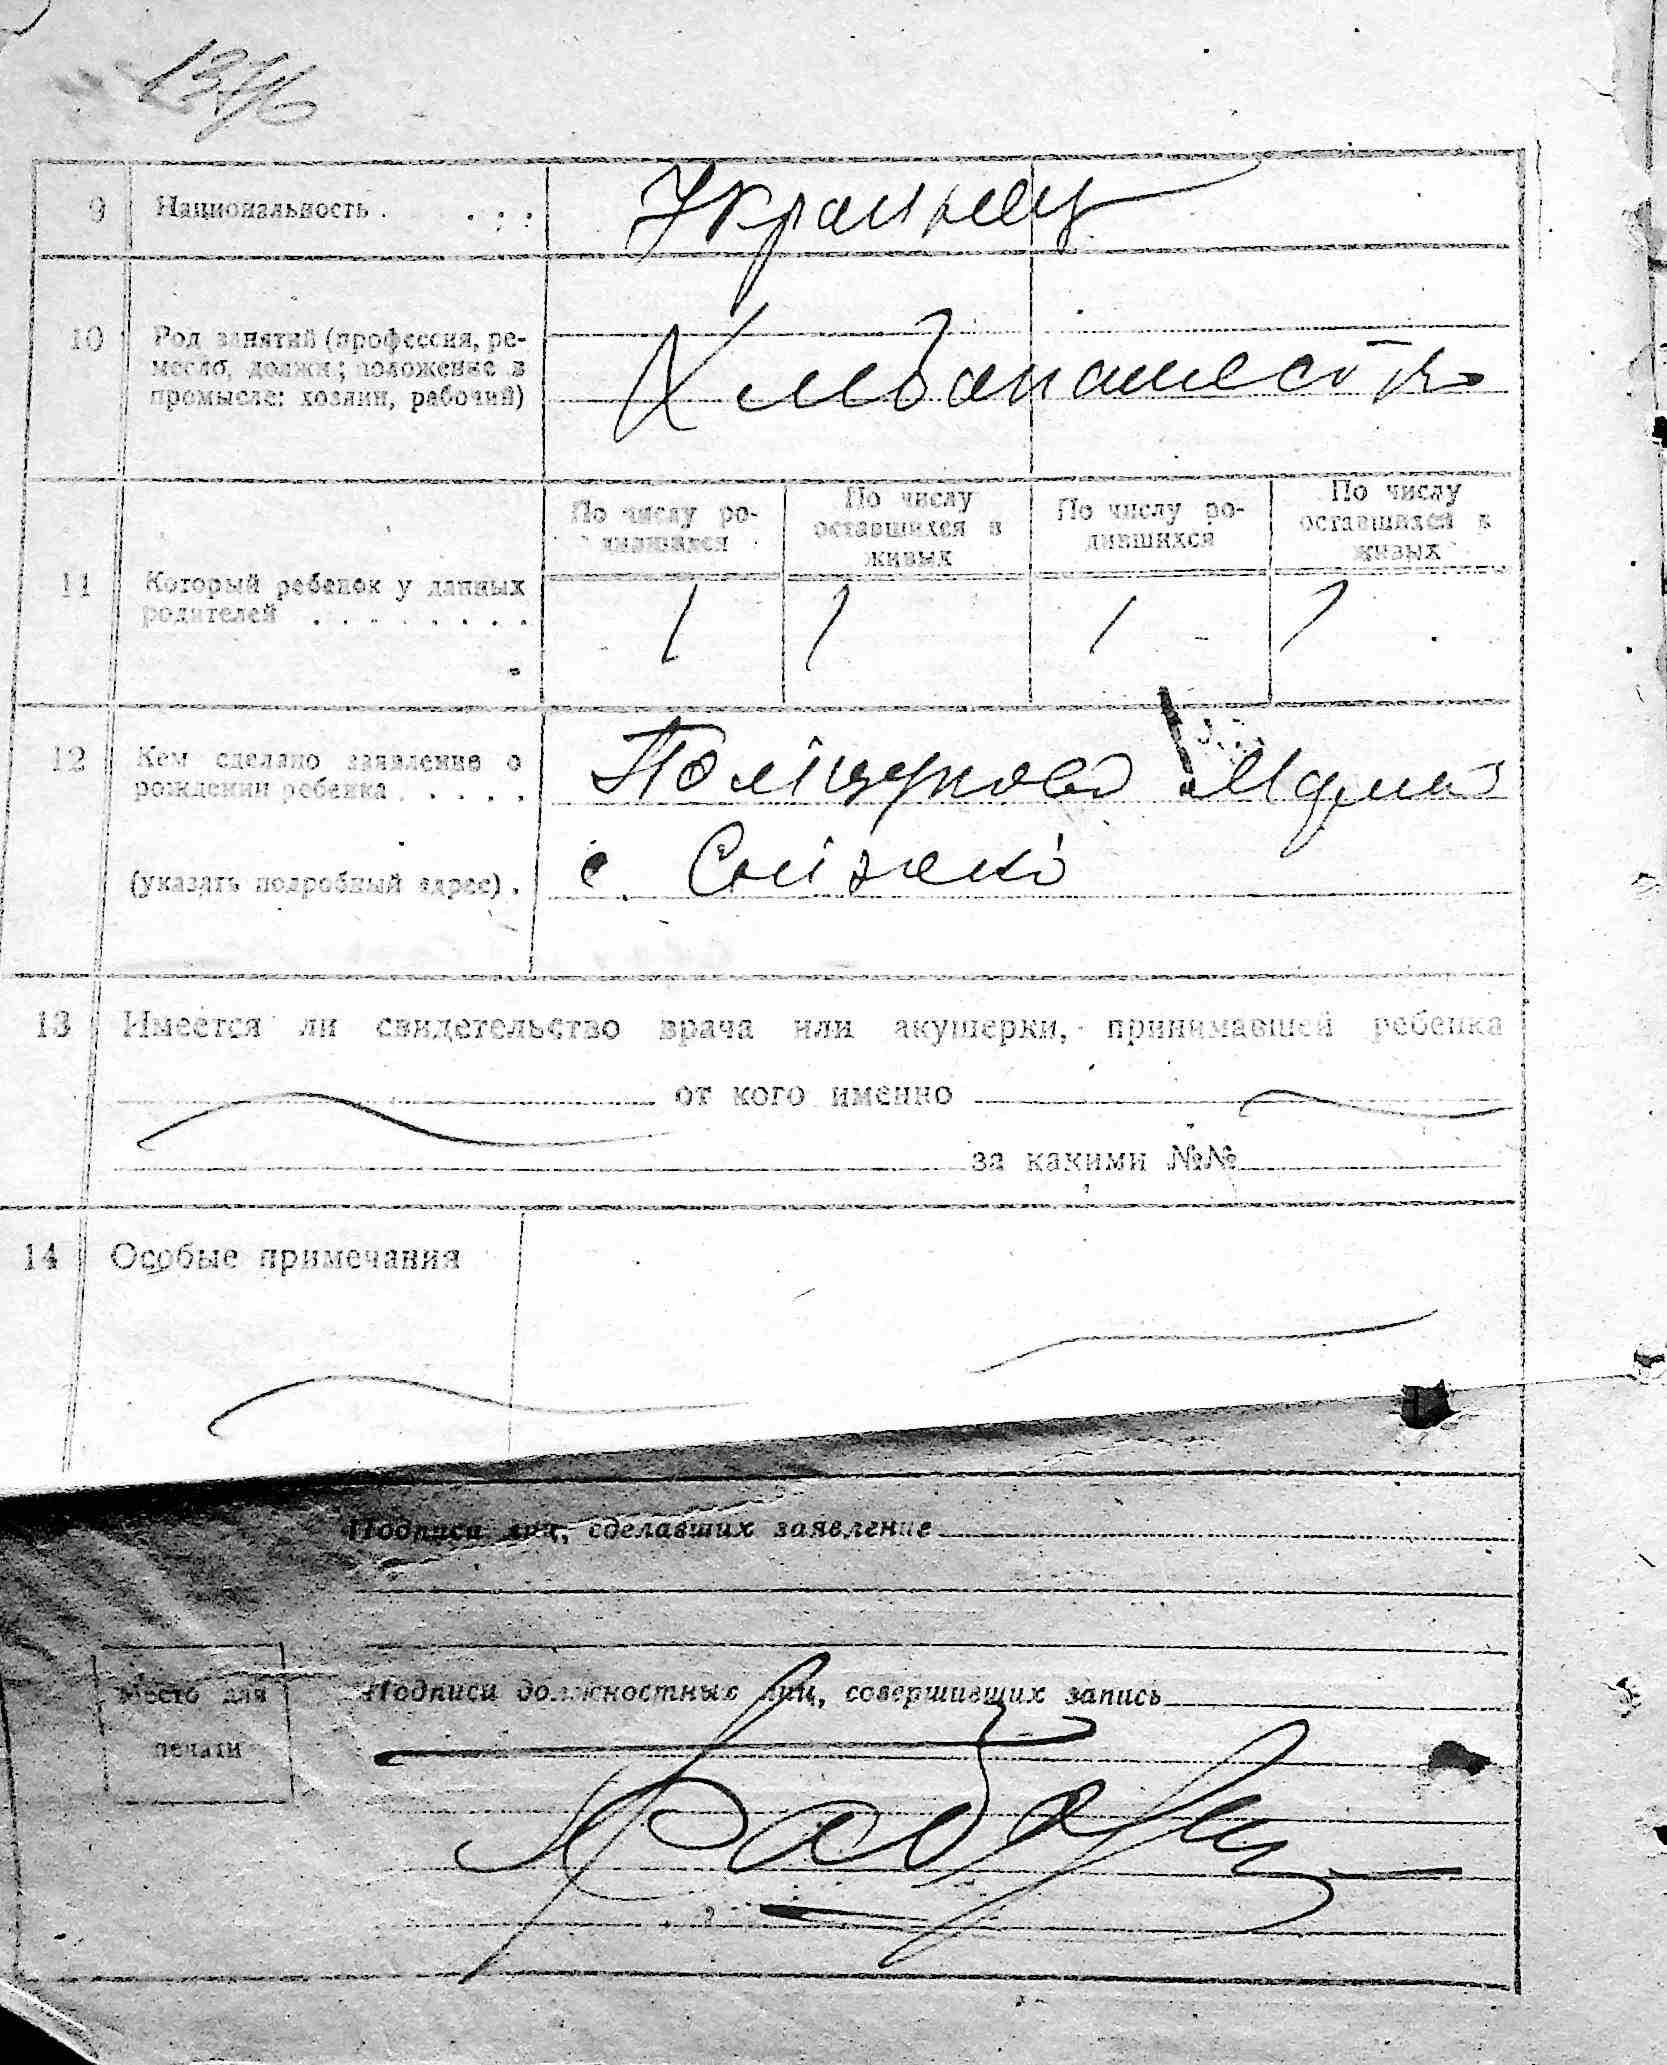 9 Национальность . . . . Украинец
10 Род занятий (профессия, ре-
месло, должн; положение в
промысле: хозяин, рабочий)
Хлебопашество
11 Который ребенок у данных
родителей . . . . . . . .
По числу ро-
дившихся
По числу
оставшихся в
живых
По числу ро-
дившихся
По числу
оставшихся в
живых
1 1 1 1
12 Кем сделано заявление о
рождении ребенка . . . . .
(указать подробный адрес) .
с.
13 Имеется ли свидетельство врача или акушерки, принимавшей ребенка
от кого именно
за какими №№
14 Особые примечания
Подписи лиц, сделавших заявление
Место для
печати
Подписи должностных лиц, совершивших запись